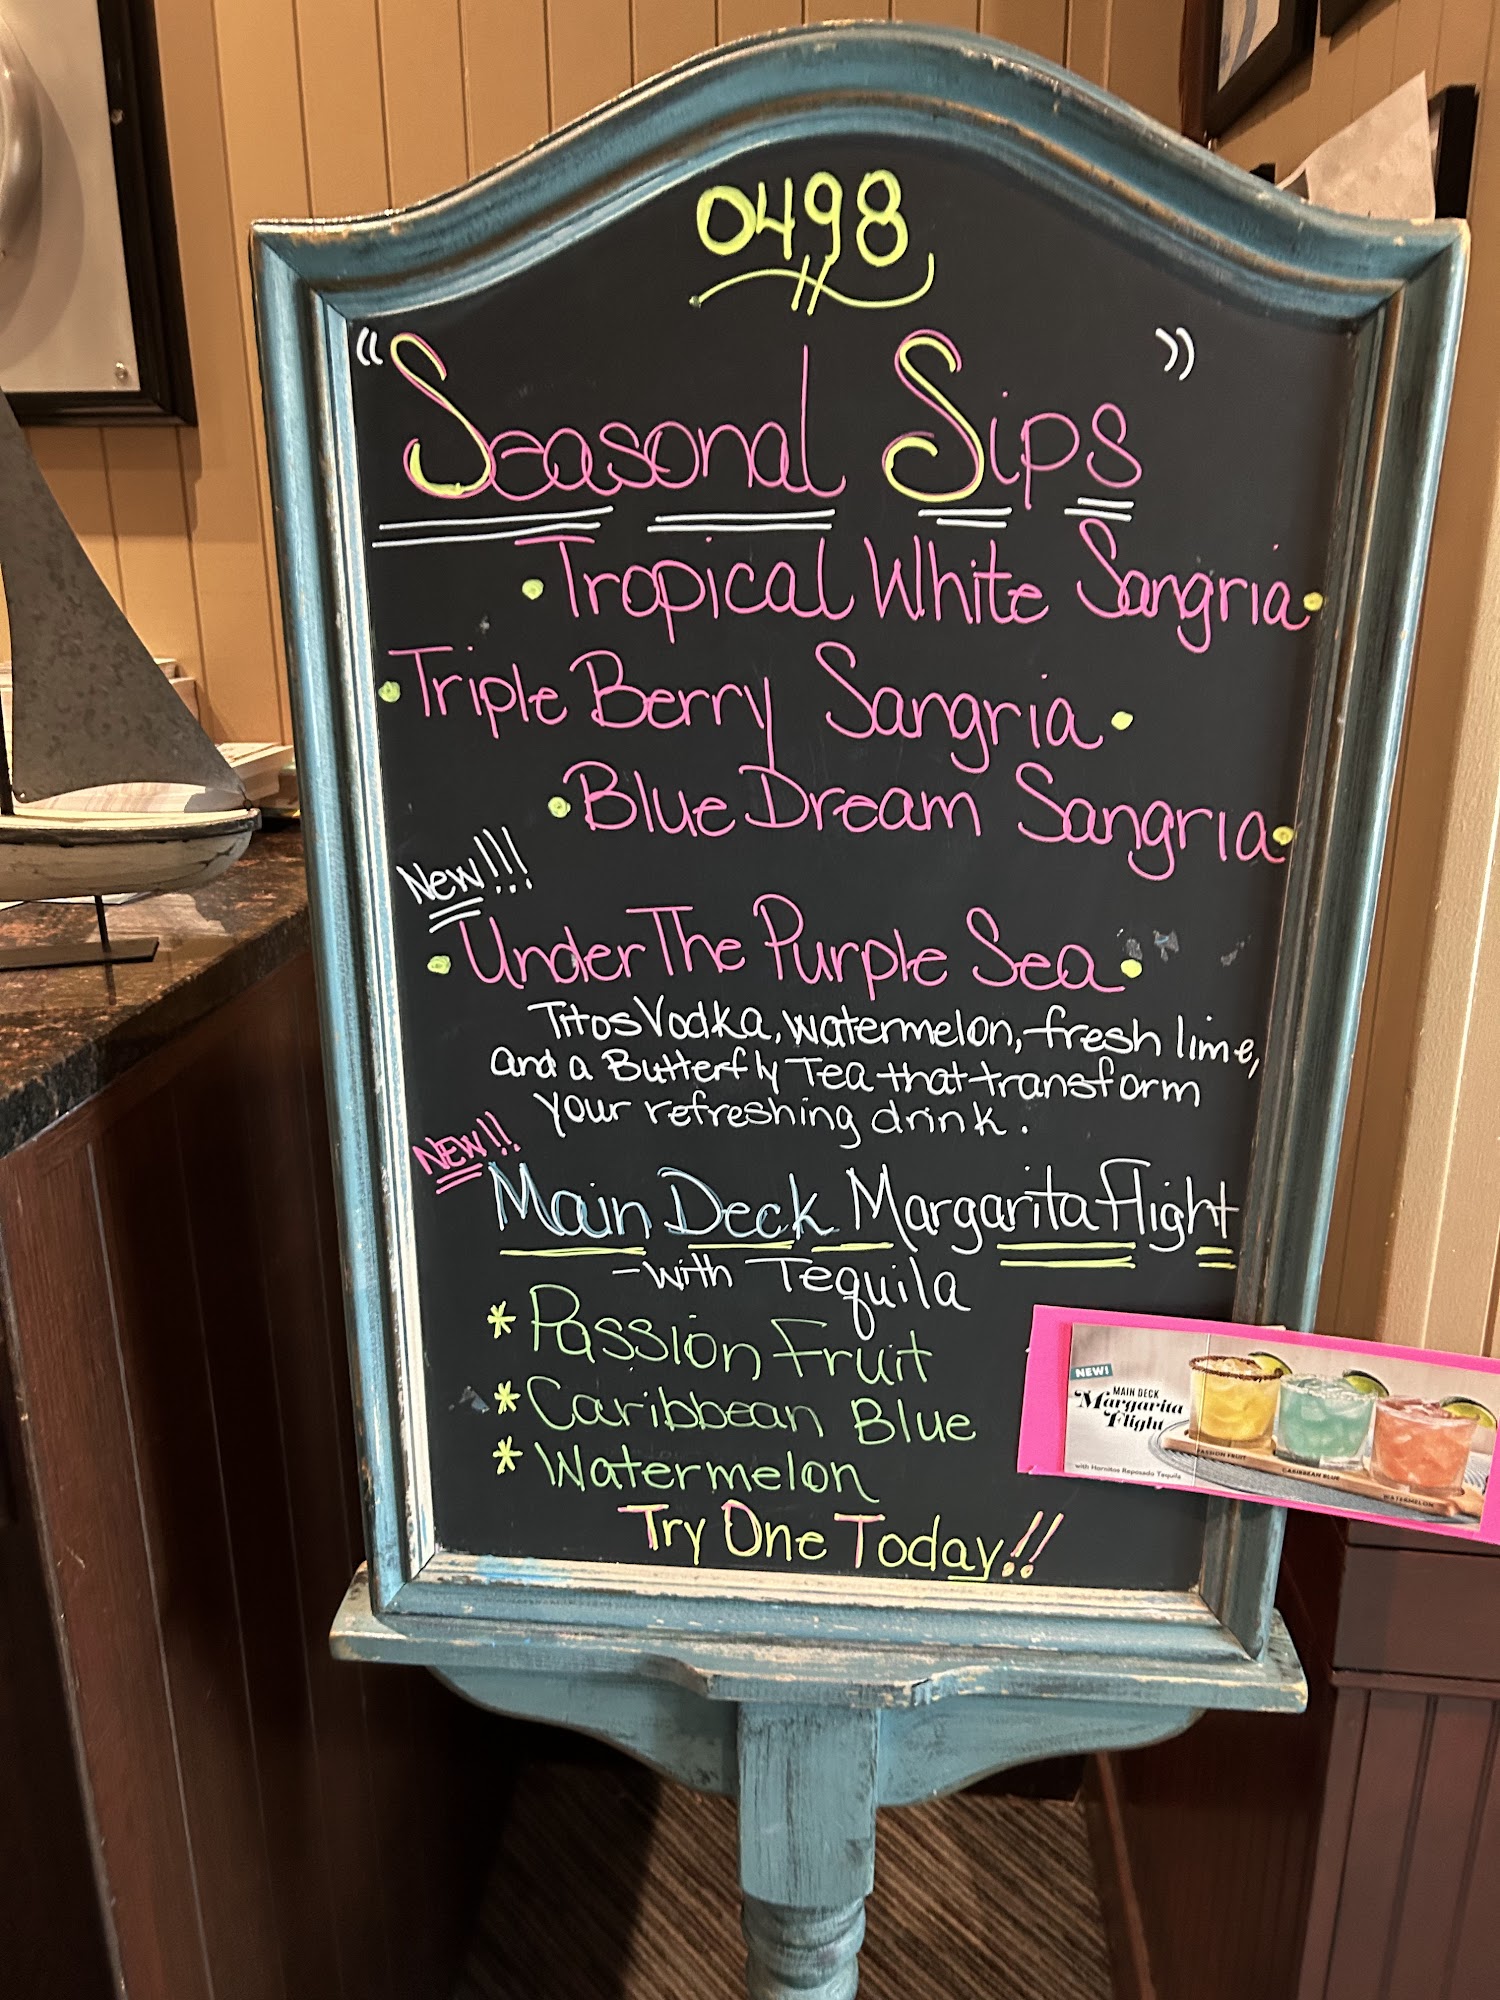 0498
"Seasonal Sips"
• Tropical White Sangria •
• Triple Berry Sangria •
• Blue Dream Sangria •
New!!!
• Under The Purple Sea •
Titos Vodka, watermelon, fresh lime,
and a Butterfly Tea that transform
your refreshing drink.
NEW!!!
Main Deck Margarita Flight
- with Tequila
* Passion Fruit
* Caribbean Blue
* Watermelon
Try One Today!!
NEW!
MAIN DECK
Margarita
Flight
with Hornitos Reposado Tequila
PASSION FRUIT
CARIBBEAN BLUE
WATERMELON